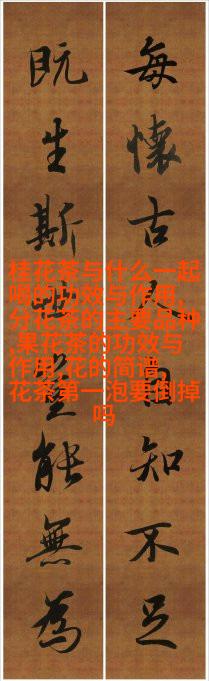 每懷古人自知不足
既生斯世豈能無為
桂花茶与什么一起
喝的功效与作用,
分花茶的主要品种
,果花茶的功效与
作用,花的简谱,
花茶第一泡要倒掉
吗